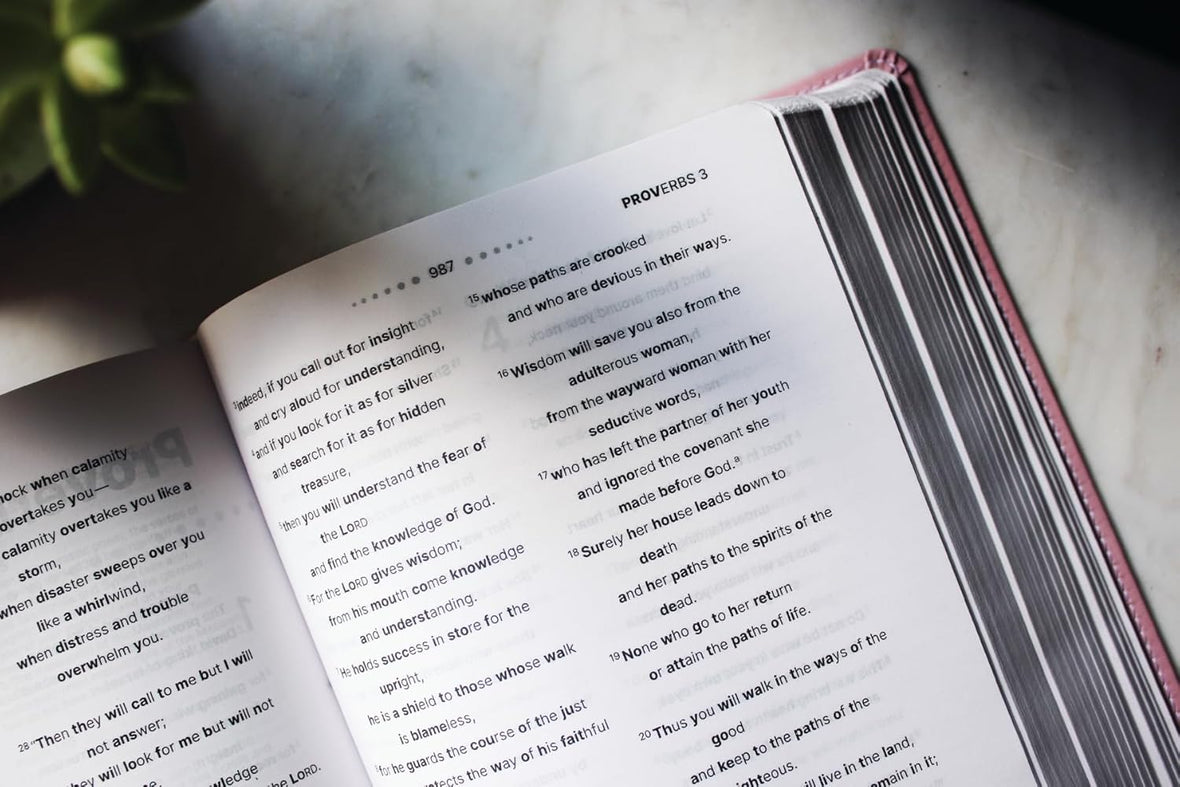 mock when calamity
overtakes you—
calamity overtakes you like a
storm,
when disaster sweeps over you
like a whirlwind,
when distress and trouble
overwhelm you.
28 “Then they will call to me but I will
not answer;
they will look for me but will not
the LORD.
987
PROVERBS 3
3 indeed, if you call out for insight
and cry aloud for understanding,
4 and if you look for it as for silver
and search for it as for hidden
treasure,
5 then you will understand the fear of
the LORD
and find the knowledge of God.
6 For the LORD gives wisdom;
from his mouth come knowledge
and understanding.
7 He holds success in store for the
upright,
he is a shield to those whose walk
is blameless,
8 for he guards the course of the just
the way of his faithful
15 whose paths are crooked
and who are devious in their ways.
16 Wisdom will save you also from the
adulterous woman,
from the wayward woman with her
seductive words,
17 who has left the partner of her youth
and ignored the covenant she
made before God.a
18 Surely her house leads down to
death
and her paths to the spirits of the
dead.
19 None who go to her return
or attain the paths of life.
20 Thus you will walk in the ways of the
good
and keep to the paths of the
righteous.
will live in the land,
remain in it;